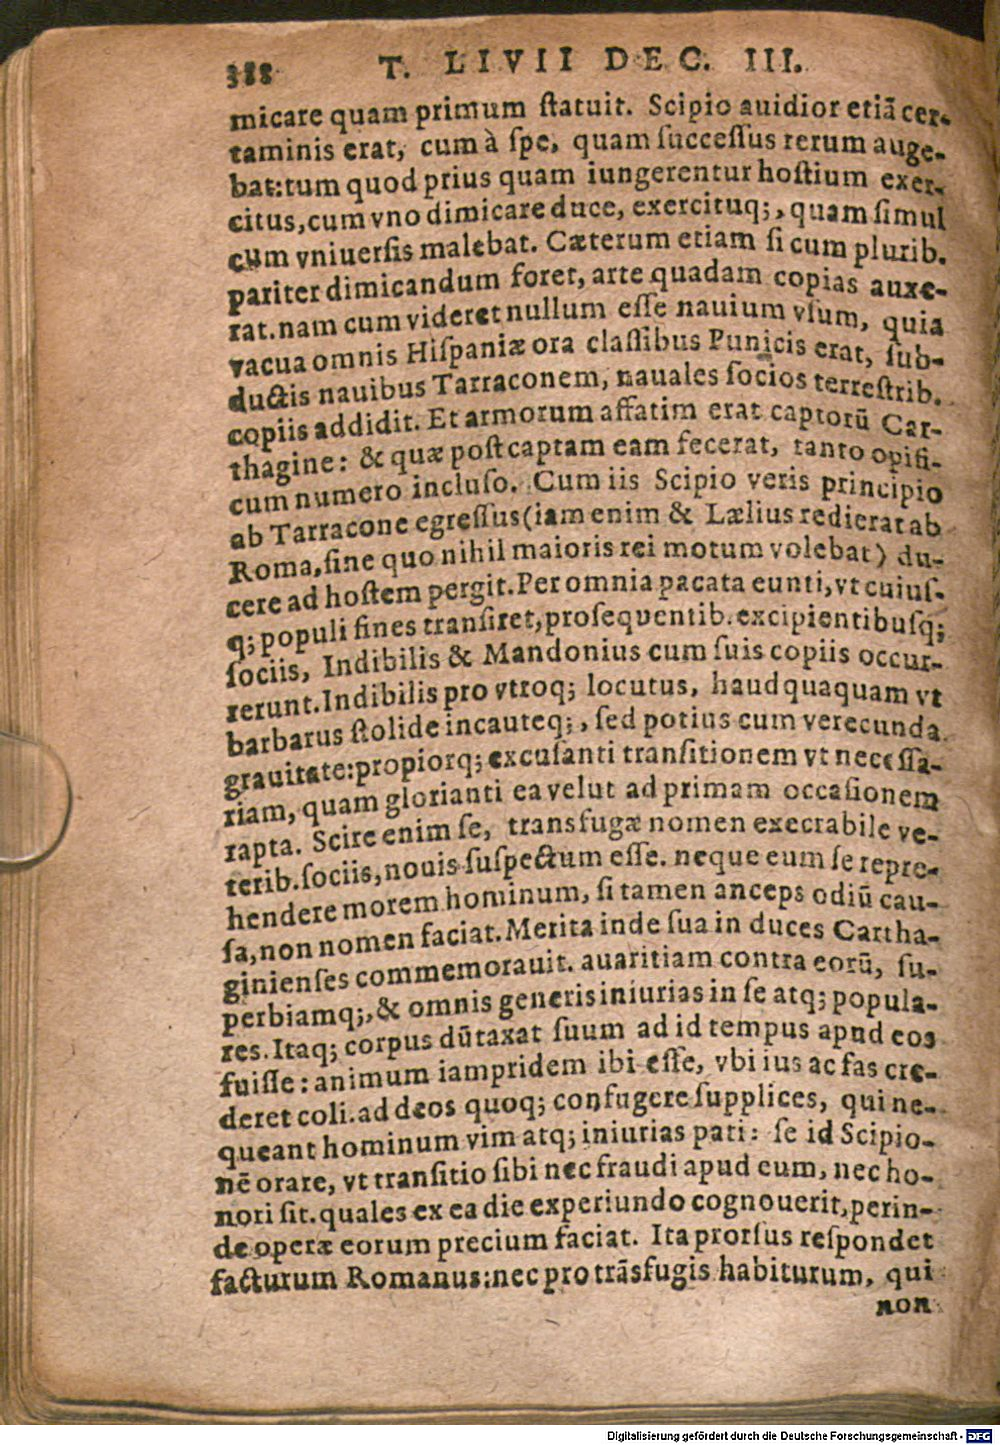 388 T. LIVII DEC. III.
micare quam primum ſtatuit. Scipio auidior etiã cer-
taminis erat, cum à ſpe, quam ſucceſſus rerum auge-
bat: tum quod prius quam iungerentur hoſtium exer-
citus, cum vno dimicare duce, exercituq;, quam ſimul
cum vniuerſis malebat. Cæterum etiam ſi cum plurib.
pariter dimicandum foret, arte quadam copias auxe-
rat. nam cum videret nullum eſſe nauium vſum, quia
vacua omnis Hiſpaniæ ora claſſibus Punicis erat, ſub-
ductis nauibus Tarraconem, nauales ſocios terreſtrib.
copiis addidit. Et armorum affatim erat captorũ Car-
thagine: & quæ poſt captam eam fecerat, tanto opifi-
cum numero incluſo. Cum iis Scipio veris principio
ab Tarracone egreſſus (iam enim & Lælius redierat ab
Roma, ſine quo nihil maioris rei motum volebat) du-
cere ad hoſtem pergit. Per omnia pacata eunti, vt cuiuſ-
q; populi fines tranſiret, proſequentib. excipientibuſq;
ſociis, Indibilis & Mandonius cum ſuis copiis occur-
rerunt. Indibilis pro vtroq; locutus, haudquaquam vt
barbarus ſtolide incauteq;, ſed potius cum verecunda
grauitate: propiorq; excuſanti tranſitionem vt neceſſa-
riam, quam glorianti ea velut ad primam occaſionem
rapta. Scire enim ſe, transfugæ nomen execrabile ve-
terib. ſociis, nouis ſuſpectum eſſe. neque eum ſe repre-
hendere morem hominum, ſi tamen anceps odiũ cau-
ſa, non nomen faciat. Merita inde ſua in duces Cartha-
ginienſes commemorauit. auaritiam contra eorũ, ſu-
perbiamq;, & omnis generis iniurias in ſe atq; popula-
res. Itaq; corpus dũtaxat ſuum ad id tempus apud eos
fuiſſe: animum iampridem ibi eſſe, vbi ius ac fas cre-
deret coli. ad deos quoq; confugere ſupplices, qui ne-
queant hominum vim atq; iniurias pati: ſe id Scipio-
nẽ orare, vt tranſitio ſibi nec fraudi apud eum, nec ho-
nori ſit. quales ex ea die experiundo cognouerit, perin-
de operæ eorum precium faciat. Ita prorſus reſpondet
facturum Romanus: nec pro trãsfugis habiturum, qui
non
Digitalisierung gefördert durch die Deutsche Forschungsgemeinschaft - DFG